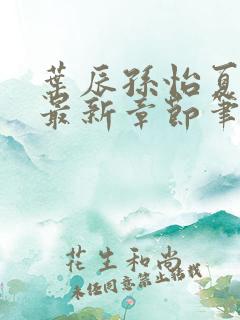 葉辰孫怡夏
最新章節筆
花生和尚
未经同意禁止转载